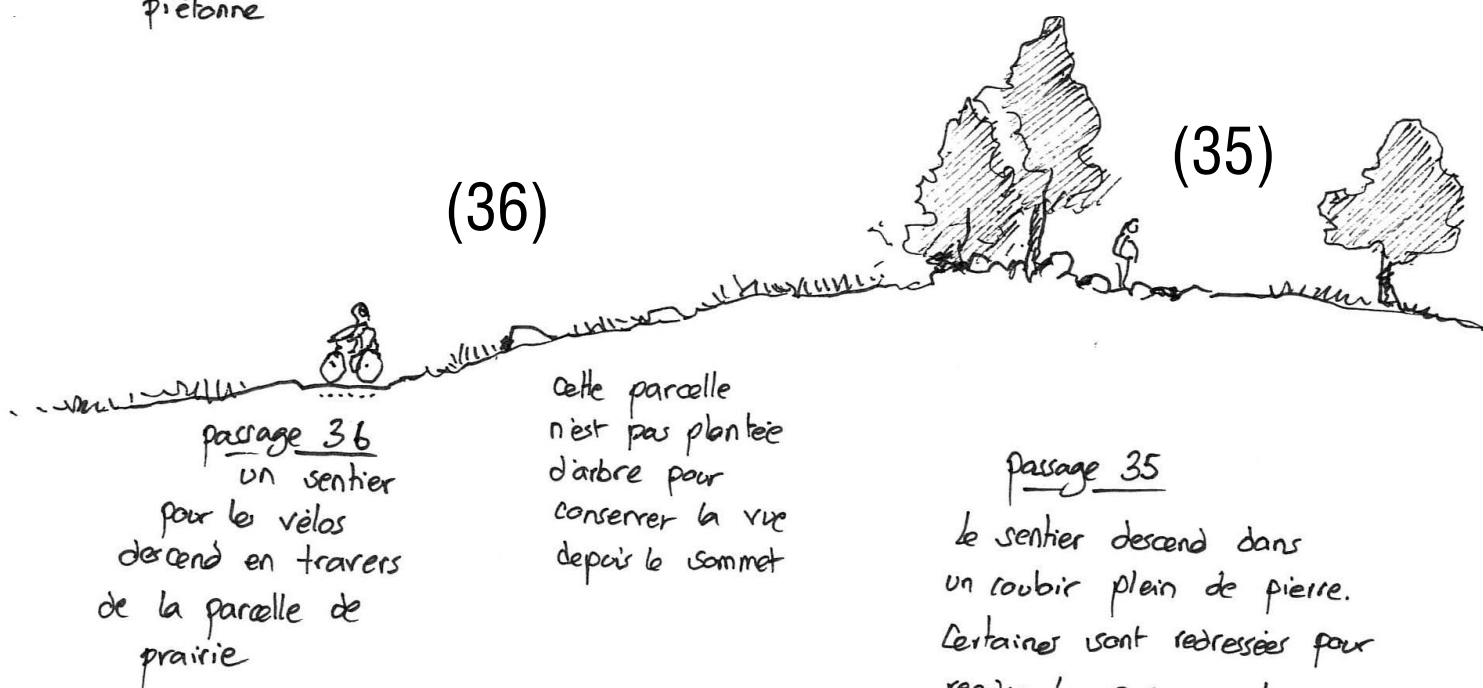 piétonne
(36)
(35)
passage 36
un sentier
pour les vélos
descend en travers
de la parcelle de
prairie
cette parcelle
n'est pas plantée
d'arbre pour
conserver la vue
depuis le sommet
passage 35
le sentier descend dans
un couloir plein de pierre.
Certaines sont redressées pour